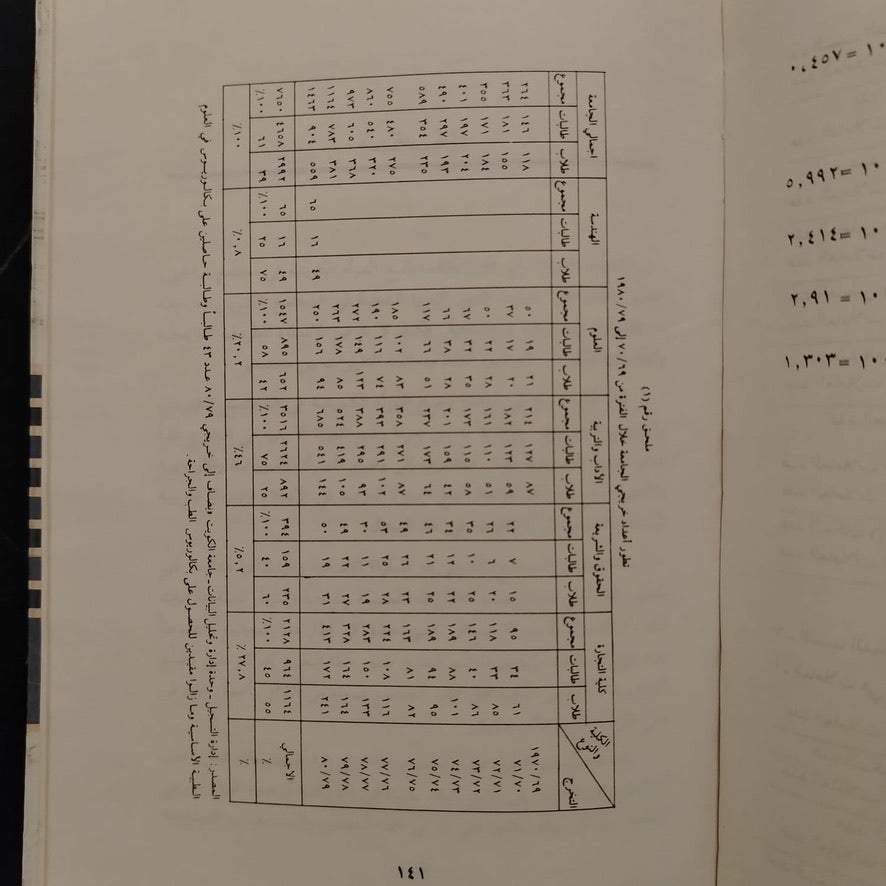 ملحق رقم (١)
تطور أعداد خريجي الجامعة خلال الفترة من ٧٠/٦٩ إلى ١٩٨٠/٧٩
التخرج كلية التجارة الحقوق والشريعة الآداب والتربية العلوم الهندسة اجمالي الجامعة
طلاب طالبات مجموع طلاب طالبات مجموع طلاب طالبات مجموع طلاب طالبات مجموع طلاب طالبات مجموع طلاب طالبات مجموع
١٩٧٠/٦٩ ٨٧ ١٢٧ ٢١٤ ٣١ ١٩ ٥٠ ١١٨ ١٤٦ ٢٦٤
٧١/٧٠ ٦١ ٣٤ ٩٥ ١٥ ٧ ٢٢ ٥٩ ١٢٣ ١٨٢ ٢٠ ١٧ ٣٧ ١٥٥ ١٨١ ٣٦٣
٧٢/٧١ ٨٥ ٣٣ ١١٨ ٢٠ ٦ ٢٦ ٥١ ١١٠ ١٦١ ٢٨ ٢٢ ٥٠ ١٨٤ ١٧١ ٣٥٥
٧٣/٧٢ ٨٦ ٤٠ ١٤٦ ٢٥ ١٠ ٣٥ ٥٨ ١١٥ ١٧٣ ٣٥ ٣٢ ٦٧ ٢٠٤ ١٩٧ ٤٠١
٧٤/٧٣ ١٠١ ٨٨ ١٨٩ ٢٢ ١٢ ٣٤ ٤٢ ١٥٩ ٢٠١ ٢٨ ٣٨ ٦٦ ١٩٣ ٢٩٧ ٤٩٠
٧٥/٧٤ ٩٥ ٩٤ ١٨٩ ٢٥ ٢١ ٤٦ ٦٤ ١٧٣ ٢٣٧ ٥١ ٦٦ ١١٧ ٢٣٥ ٣٥٤ ٥٨٩
٧٦/٧٥ ٨٢ ٨١ ١٦٣ ٢٣ ٢٦ ٤٩ ٨٧ ٢٧١ ٣٥٨ ٨٣ ١٠٢ ١٨٥ ٢٧٥ ٤٨٠ ٧٥٥
٧٧/٧٦ ١١٦ ١٠٨ ٢٢٤ ٢٨ ٢٥ ٥٣ ١٠٢ ٢٩١ ٣٩٣ ٧٤ ١١٦ ١٩٠ ٣٢٠ ٥٤٠ ٨٦٠
٧٨/٧٧ ١٣٣ ١٥٠ ٢٨٣ ١٩ ١١ ٣٠ ٩٣ ٢٩٥ ٣٨٨ ١٢٣ ١٤٩ ٢٧٢ ٣٦٨ ٦٠٥ ٩٧٣
٧٩/٧٨ ١٦٤ ١٦٤ ٣٢٨ ٢٧ ٢٢ ٤٩ ١٠٥ ٤١٩ ٥٢٤ ٨٥ ١٧٨ ٢٦٣ ٣٨١ ٧٨٣ ١١٦٤
٨٠/٧٩ ٢٤١ ١٧٢ ٤١٣ ٣١ ١٩ ٥٠ ١٤٤ ٥٤١ ٦٨٥ ٩٤ ١٥٦ ٢٥٠ ٤٩ ١٦ ٦٥ ٥٥٩ ٩٠٤ ١٤٦٣
الاجمالي ١١٦٤ ٩٦٤ ٢١٢٨ ٢٣٥ ١٥٩ ٣٩٤ ٨٩٢ ٢٦٢٤ ٣٥١٦ ٦٥٢ ٨٩٥ ١٥٤٧ ٤٩ ١٦ ٦٥ ٢٩٩٢ ٤٦٥٨ ٧٦٥٠
٪ ٥٥ ٤٥ ١٠٠٪ ٦٠ ٤٠ ١٠٠٪ ٢٥ ٧٥ ١٠٠٪ ٤٢ ٥٨ ١٠٠٪ ٧٥ ٢٥ ١٠٠٪ ٣٩ ٦١ ١٠٠٪
٪ ٢٧,٨٪ ٥,٢٪ ٤٦٪ ٢٠,٢٪ ٠,٨٪ ١٠٠٪
المصدر: إدارة التسجيل - وحدة إدارة وتحليل البيانات - جامعة الكويت ويضاف إلى خريجي ٨٠/٧٩ عدد ٤٣ طالباً وطالبة حاصلين على بكالوريوس في العلوم
الطبية الأساسية وما زالوا مقيدين للحصول على بكالوريوس الطب والجراحة.
١٤١